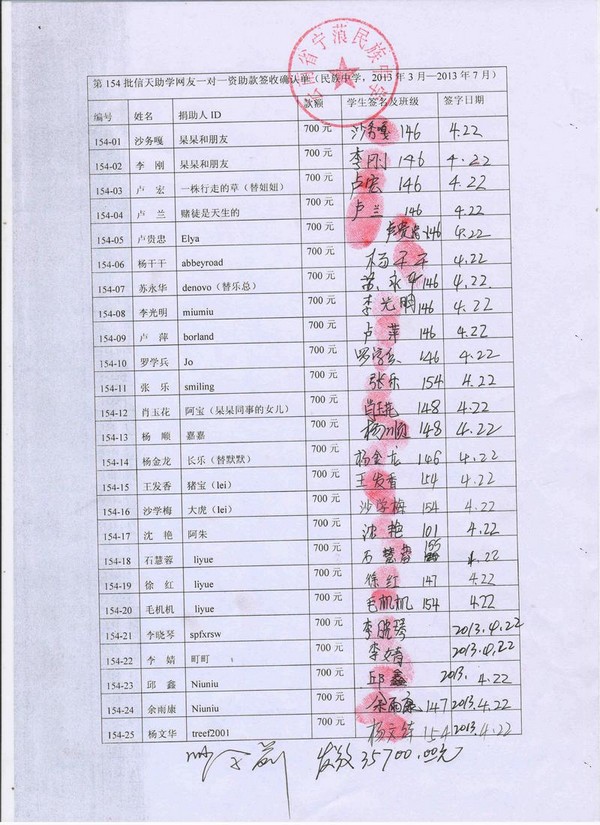 省宁蒗民族中学
第154批信天助学网友一对一资助款签收确认单（民族中学，2013年3月—2013年7月）
编号 姓名 捐助人ID 款额 学生签名及班级 签字日期
154-01 沙务嘎 呆呆和朋友 700元 沙务嘎 146 4.22
154-02 李 刚 呆呆和朋友 700元 李刚 146 4.22
154-03 卢 宏 一株行走的草（替妞妞） 700元 卢宏 146 4.22
154-04 卢 兰 赌徒是天生的 700元 卢兰 146 4.22
154-05 卢贵忠 Elya 700元 卢贵忠 146 4.22
154-06 杨干干 abbeyroad 700元 杨干干 4.22
154-07 苏永华 denovo（替乐总） 700元 苏永华 146 4.22
154-08 李光明 miumiu 700元 李光明 146 4.22
154-09 卢 萍 borland 700元 卢萍 146 4.22
154-10 罗学兵 Jo 700元 罗学兵 146 4.22
154-11 张 乐 smiling 700元 张乐 154 4.22
154-12 肖玉花 阿宝（呆呆同事的女儿） 700元 肖玉花 148 4.22
154-13 杨 顺 嘉嘉 700元 杨顺 148 4.22
154-14 杨金龙 长乐（替默默） 700元 杨金龙 146 4.22
154-15 王发香 猪宝（lei） 700元 王发香 154 4.22
154-16 沙学梅 大虎（lei） 700元 沙学梅 154 4.22
154-17 沈 艳 阿朱 700元 沈艳 101 4.22
154-18 石慧蓉 liyue 700元 石慧蓉 155 4.22
154-19 徐 红 liyue 700元 徐红 147 4.22
154-20 毛机机 liyue 700元 毛机机 154 4.22
154-21 李晓琴 spfxrsw 700元 李晓琴 2013.4.22
154-22 李 婧 町町 700元 李婧 2013.4.22
154-23 邱 鑫 Niuniu 700元 邱鑫 2013.4.22
154-24 余雨康 Niuniu 700元 余雨康 147 2013.4.22
154-25 杨文华 treef2001 700元 杨文华 154 2013.4.22
发放35700.00元